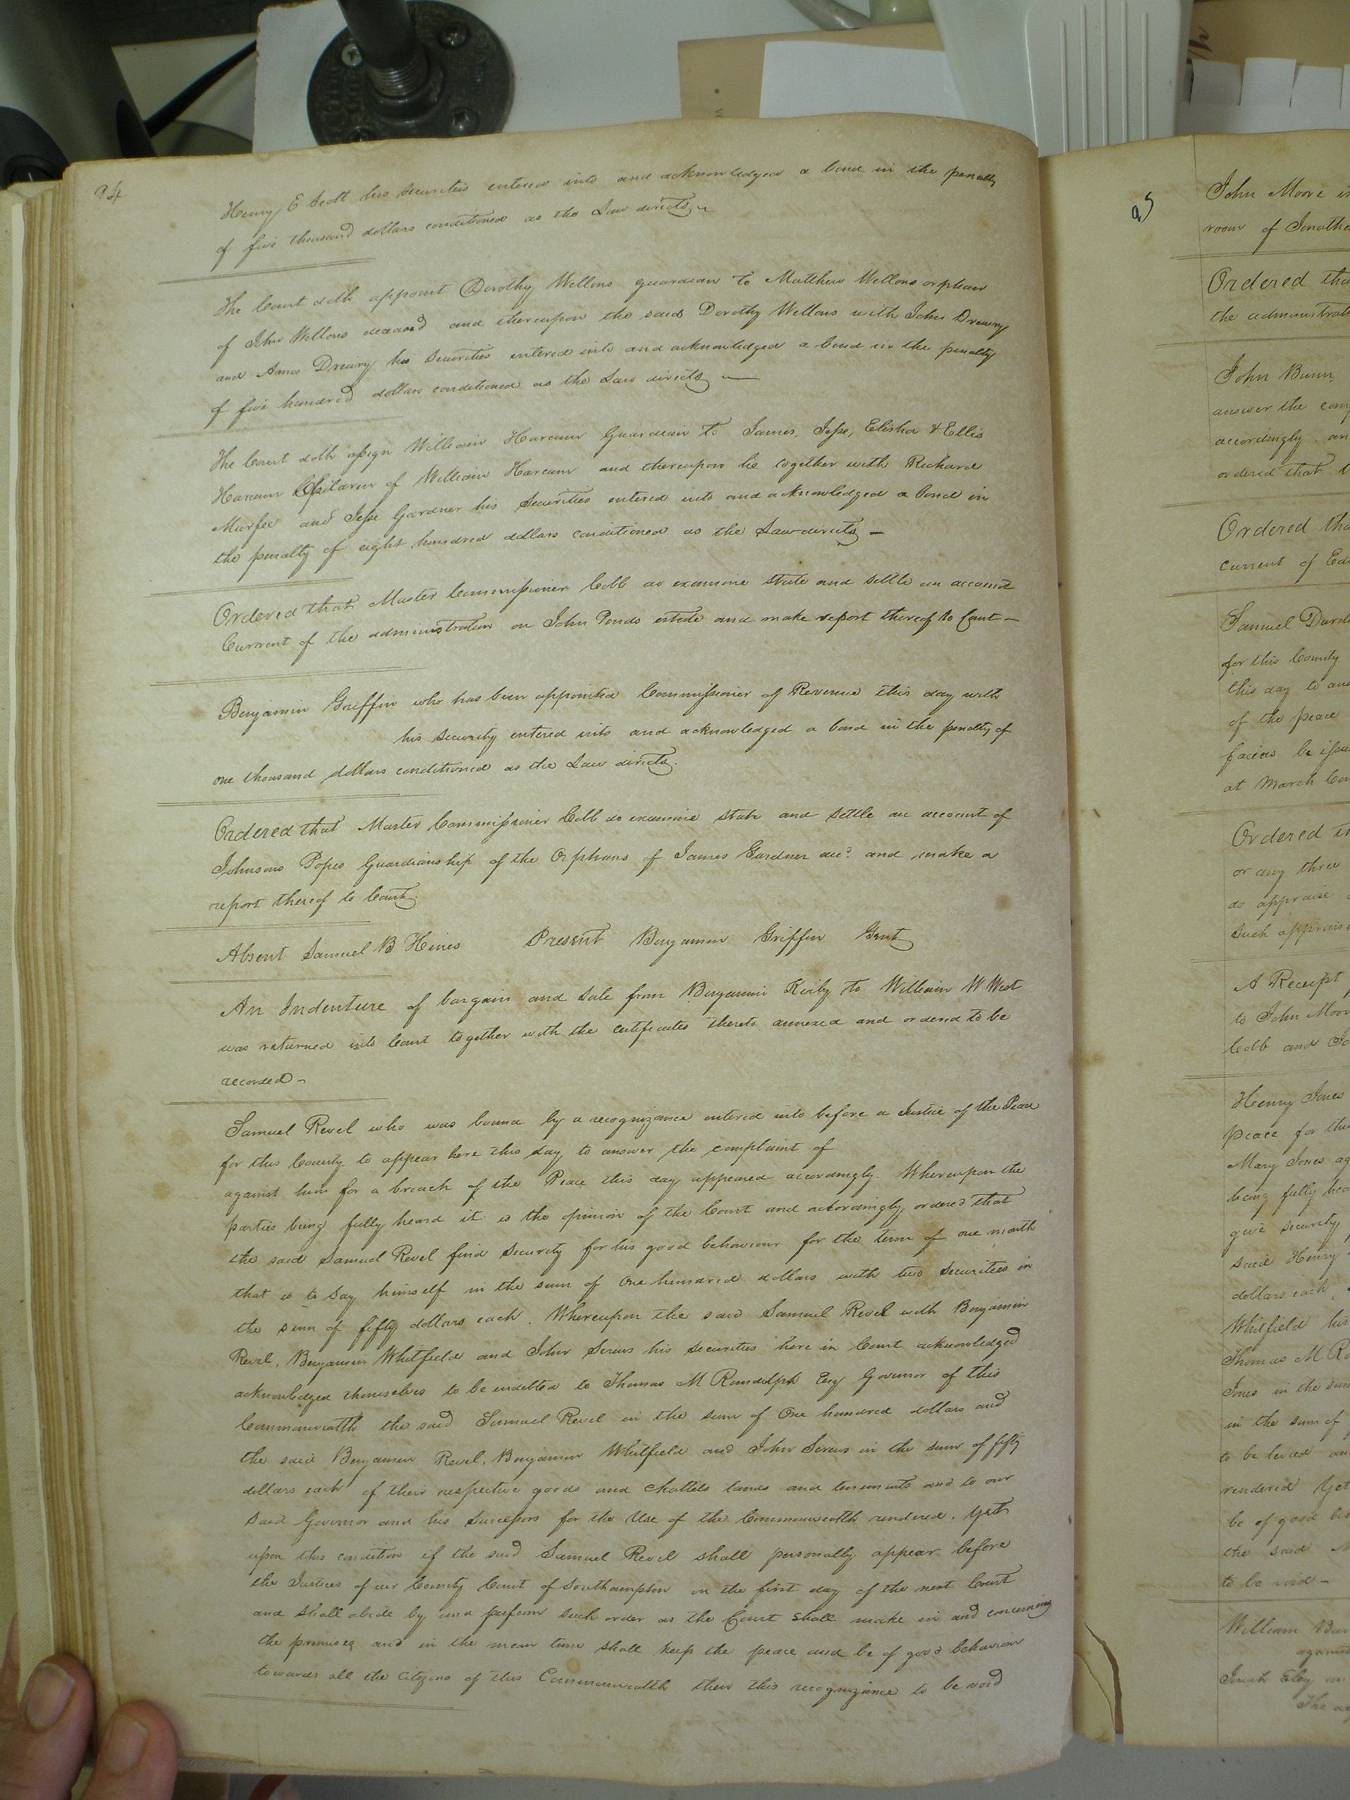 94
Henry E Scott his securities entered into and acknowledged a bond in the penalty
of five thousand dollars conditioned as the Law directs
The Court doth appoint Dorothy Wellons guardian to Matthew Wellons orphan
of John Wellons deceased and thereupon the said Dorothy Wellons with John Drewry
and Amos Drewry her securities entered into and acknowledged a bond in the penalty
of five hundred dollars conditioned as the Law directs —
The Court doth assign William Harcum Guardian to James, Jesse, Elisha & Ellis
Harcum Children of William Harcum and thereupon he together with Richard
Murfee and Jesse Gardner his Securities entered into and acknowledged a bond in
the penalty of eight hundred dollars conditioned as the Law directs —
Ordered that Master Commissioner Cobb do examine state and settle an account
Current of the administration on John Ponds estate and make report thereof to Court —
Benjamin Griffin who has been appointed Commissioner of Revenue this day with
his security entered into and acknowledged a bond in the penalty of
one thousand dollars conditioned as the Law directs.
Ordered that Master Commissioner Cobb do examine state and settle an account of
Johnsons Popes Guardianship of the Orphans of James Gardner decd. and make a
report thereof to Court
Absent Samuel B Hines Present Benjamin Griffin Gent
An Indenture of bargain and sale from Benjamin Kirby to William W West
was returned into Court together with the certificates thereto annexed and ordered to be
recorded —
Samuel Revel who was bound by a recognizance entered into before a Justice of the Peace
for this County to appear here this day to answer the complaint of
against him for a breach of the Peace this day appeared accordingly Whereupon the
parties being fully heard it is the opinion of the Court and accordingly ordered that
the said Samuel Revel find security for his good behaviour for the term of one month
that is to say himself in the sum of One hundred dollars with two Securities in
the sum of fifty dollars each. Whereupon the said Samuel Revel with Benjamin
Revel, Benjamin Whitfield and John his securities here in Court acknowledged
acknowledged themselves to be indebted to Thomas M Randolph Esq Governor of this
Commonwealth the said Samuel Revel in the sum of One hundred dollars and
the said Benjamin Revel, Benjamin Whitfield and John in the sum of fifty
dollars each of their respective goods and Chattels lands and tenements and to our
said Governor and his Successors for the Use of the Commonwealth rendered. Yet
upon this condition if the said Samuel Revel shall personally appear before
the Justices of our County Court of Southampton on the first day of the next Court
and shall abide by and perform such order as the Court shall make in and concerning
the premises and in the mean time shall keep the peace and be of good behavior
towards all the Citizens of this Commonwealth then this recognizance to be void
95
John Moore
room of
Ordered tha
the administrat
John Bunn
answer the com
accordingly an
ordered that
Ordered tha
current of Ed
Samuel Dard
for this County
this day to an
of the peace
facias be issu
at March Cou
Ordered
or any three
do appraise
such apprais
A Receipt
to John Moor
Cobb and
Henry Jones
peace for thi
Mary Jones ag
being fully hea
give security
said Henry
dollars each
Whitfield his
Thomas M Ra
Jones in the sum
in the sum of
to be levied an
rendered Yet
be of good be
the said
to be void —
William Bar
against
The